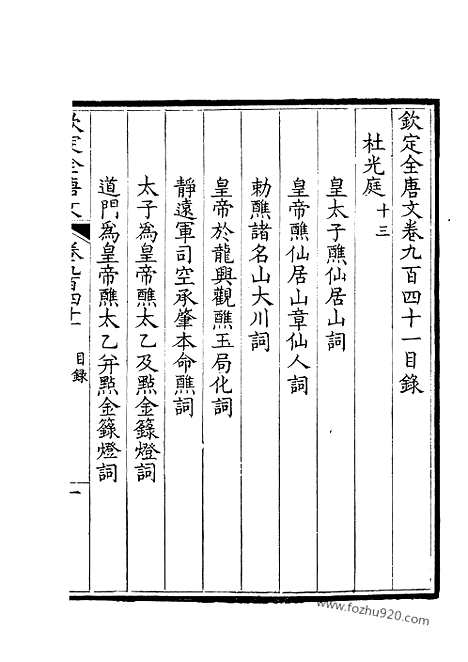 欽定全唐文卷九百四十一目錄
杜光庭十三
皇太子醮仙居山詞
皇帝醮仙居山章仙人詞
勅醮諸名山大川詞
皇帝於龍興觀醮玉局化詞
靜遠軍司空承肇本命醮詞
太子為皇帝醮太乙及點金籙燈詞
道門為皇帝醮太乙并點金籙燈詞
欽定全唐文 卷九百四十一 目錄 一
www.fozhu920.com